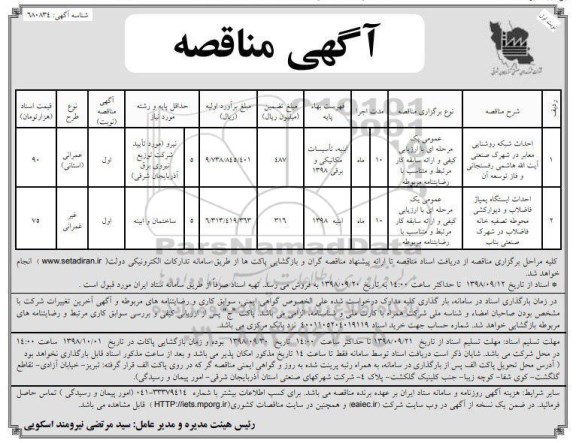 شناسه آگهی: ۶۸۰۸۳۴
نوبت اول
آگهی مناقصه
ردیف
شرح مناقصه
نوع برگزاری مناقصه
مدت اجرا
فهرست بهاء پایه
مبلغ تضمین (میلیون ریال)
مبلغ برآورد اولیه (ریال)
حداقل پایه و رشته مورد نیاز
آگهی مناقصه (نوبت)
نوع طرح
قیمت اسناد (هزارتومان)
۱
احداث شبکه روشنایی معابر در شهرک صنعتی آیت الله هاشمی رفسنجانی و فاز توسعه آن
عمومی یک مرحله ای با ارزیابی کیفی و ارائه سابقه کار مرتبط و متناسب با رضایتنامه مربوطه
۱۰ ماه
ابنیه، تأسیسات مکانیکی و برقی ۱۳۹۸
۴۸۷
۹/۷۳۸/۸۴۵/۴۰۱
۵
نیرو (مورد تأیید شرکت توزیع نیروی برق آذربایجان شرقی)
اول
عمرانی (استانی)
۹۰
۲
احداث ایستگاه پمپاژ فاضلاب و دیوارکشی محوطه تصفیه خانه فاضلاب در شهرک صنعتی بناب
عمومی یک مرحله ای با ارزیابی کیفی و ارائه سابقه کار مرتبط و متناسب با رضایتنامه مربوطه
۱۰ ماه
ابنیه ۱۳۹۸
۳۱۶
۶/۳۱۳/۴۱۹/۳۶۳
۵
ساختمان و ابنیه
اول
غیر عمرانی
۷۵
ParsNamadData
کلیه مراحل برگزاری مناقصه از دریافت اسناد مناقصه تا ارائه پیشنهاد مناقصه گران و بازگشایی پاکت ها از طریق سامانه تدارکات الکترونیکی دولت( www.setadiran.ir ) انجام خواهد شد.
* اسناد از تاریخ ۱۳۹۸/۰۹/۱۲ تا حداکثر ساعت ۱۴:۰۰ به تاریخ ۱۳۹۸/۰۹/۲۰ به فروش می رسد. تهیه اسناد صرفاً از طریق سامانه ستاد ایران مورد قبول است .
در زمان بارگذاری اسناد در سامانه، بار گذاری کلیه مدارک درخواست شده علی الخصوص گواهی ایمنی، سوابق کاری و رضایتنامه های مربوطه و آگهی آخرین تغییرات شرکت با مشخص بودن صاحبان امضاء و شناسه ملی شرکت همراه با کارت ملی و شناسنامه، الزامی می باشد. پاکت "ج" پس از ارزیابی کیفی و بررسی سوابق کاری مرتبط و رضایتنامه های مربوطه بازگشایی خواهد شد. شماره حساب جهت خرید اسناد نزد بانک مرکزی می باشد.
مهلت تسلیم اسناد: مهلت تسلیم اسناد از تاریخ ۱۳۹۸/۰۹/۲۱ تا حداکثر ساعت ۱۴:۰۰ تاریخ ۱۳۹۸/۰۹/۳۰ بوده و زمان بازگشایی پاکات در تاریخ ۱۳۹۸/۱۰/۰۱ ساعت ۱۴:۰۰ در محل شرکت می باشد. شایان ذکر است دریافت اسناد توسط سامانه فقط تا ساعت ۱۴ تاریخ مذکور امکان پذیر می باشد و بعد از ساعت مذکور اسناد قابل بارگذاری نخواهد بود
( آدرس محل تحویل پاکت الف پس از بارگذاری در سامانه، به همراه رتبه پرینت شده به روز و گواهی ایمنی مناقصه گر که در روی پاکت الف قرار گرفته: تبریز- خیابان آزادی- تقاطع گلگشت- کوی شفا- کوچه زیبا- جنب کلینیک گلگشت- پلاک ۴- شرکت شهرکهای صنعتی استان آذربایجان شرقی - امور پیمان و رسیدگی).
سایر شرایط: هزینه آگهی روزنامه و سامانه ستاد ایران بر عهده برنده مناقصه می باشد. برای کسب اطلاعات بیشتر با شماره ۳۳۳۷۹۴۱۴-۰۴۱ (امور پیمان و رسیدگی ) تماس حاصل فرمائید. در ضمن یک نسخه از آگهی در وب سایت شرکت (eaiec.ir) و همچنین در سایت مناقصات کشوری( HTTP://iets.mporg.ir ) قابل مشاهده می باشد.
رئیس هیئت مدیره و مدیر عامل: سید مرتضی نیرومند اسکویی